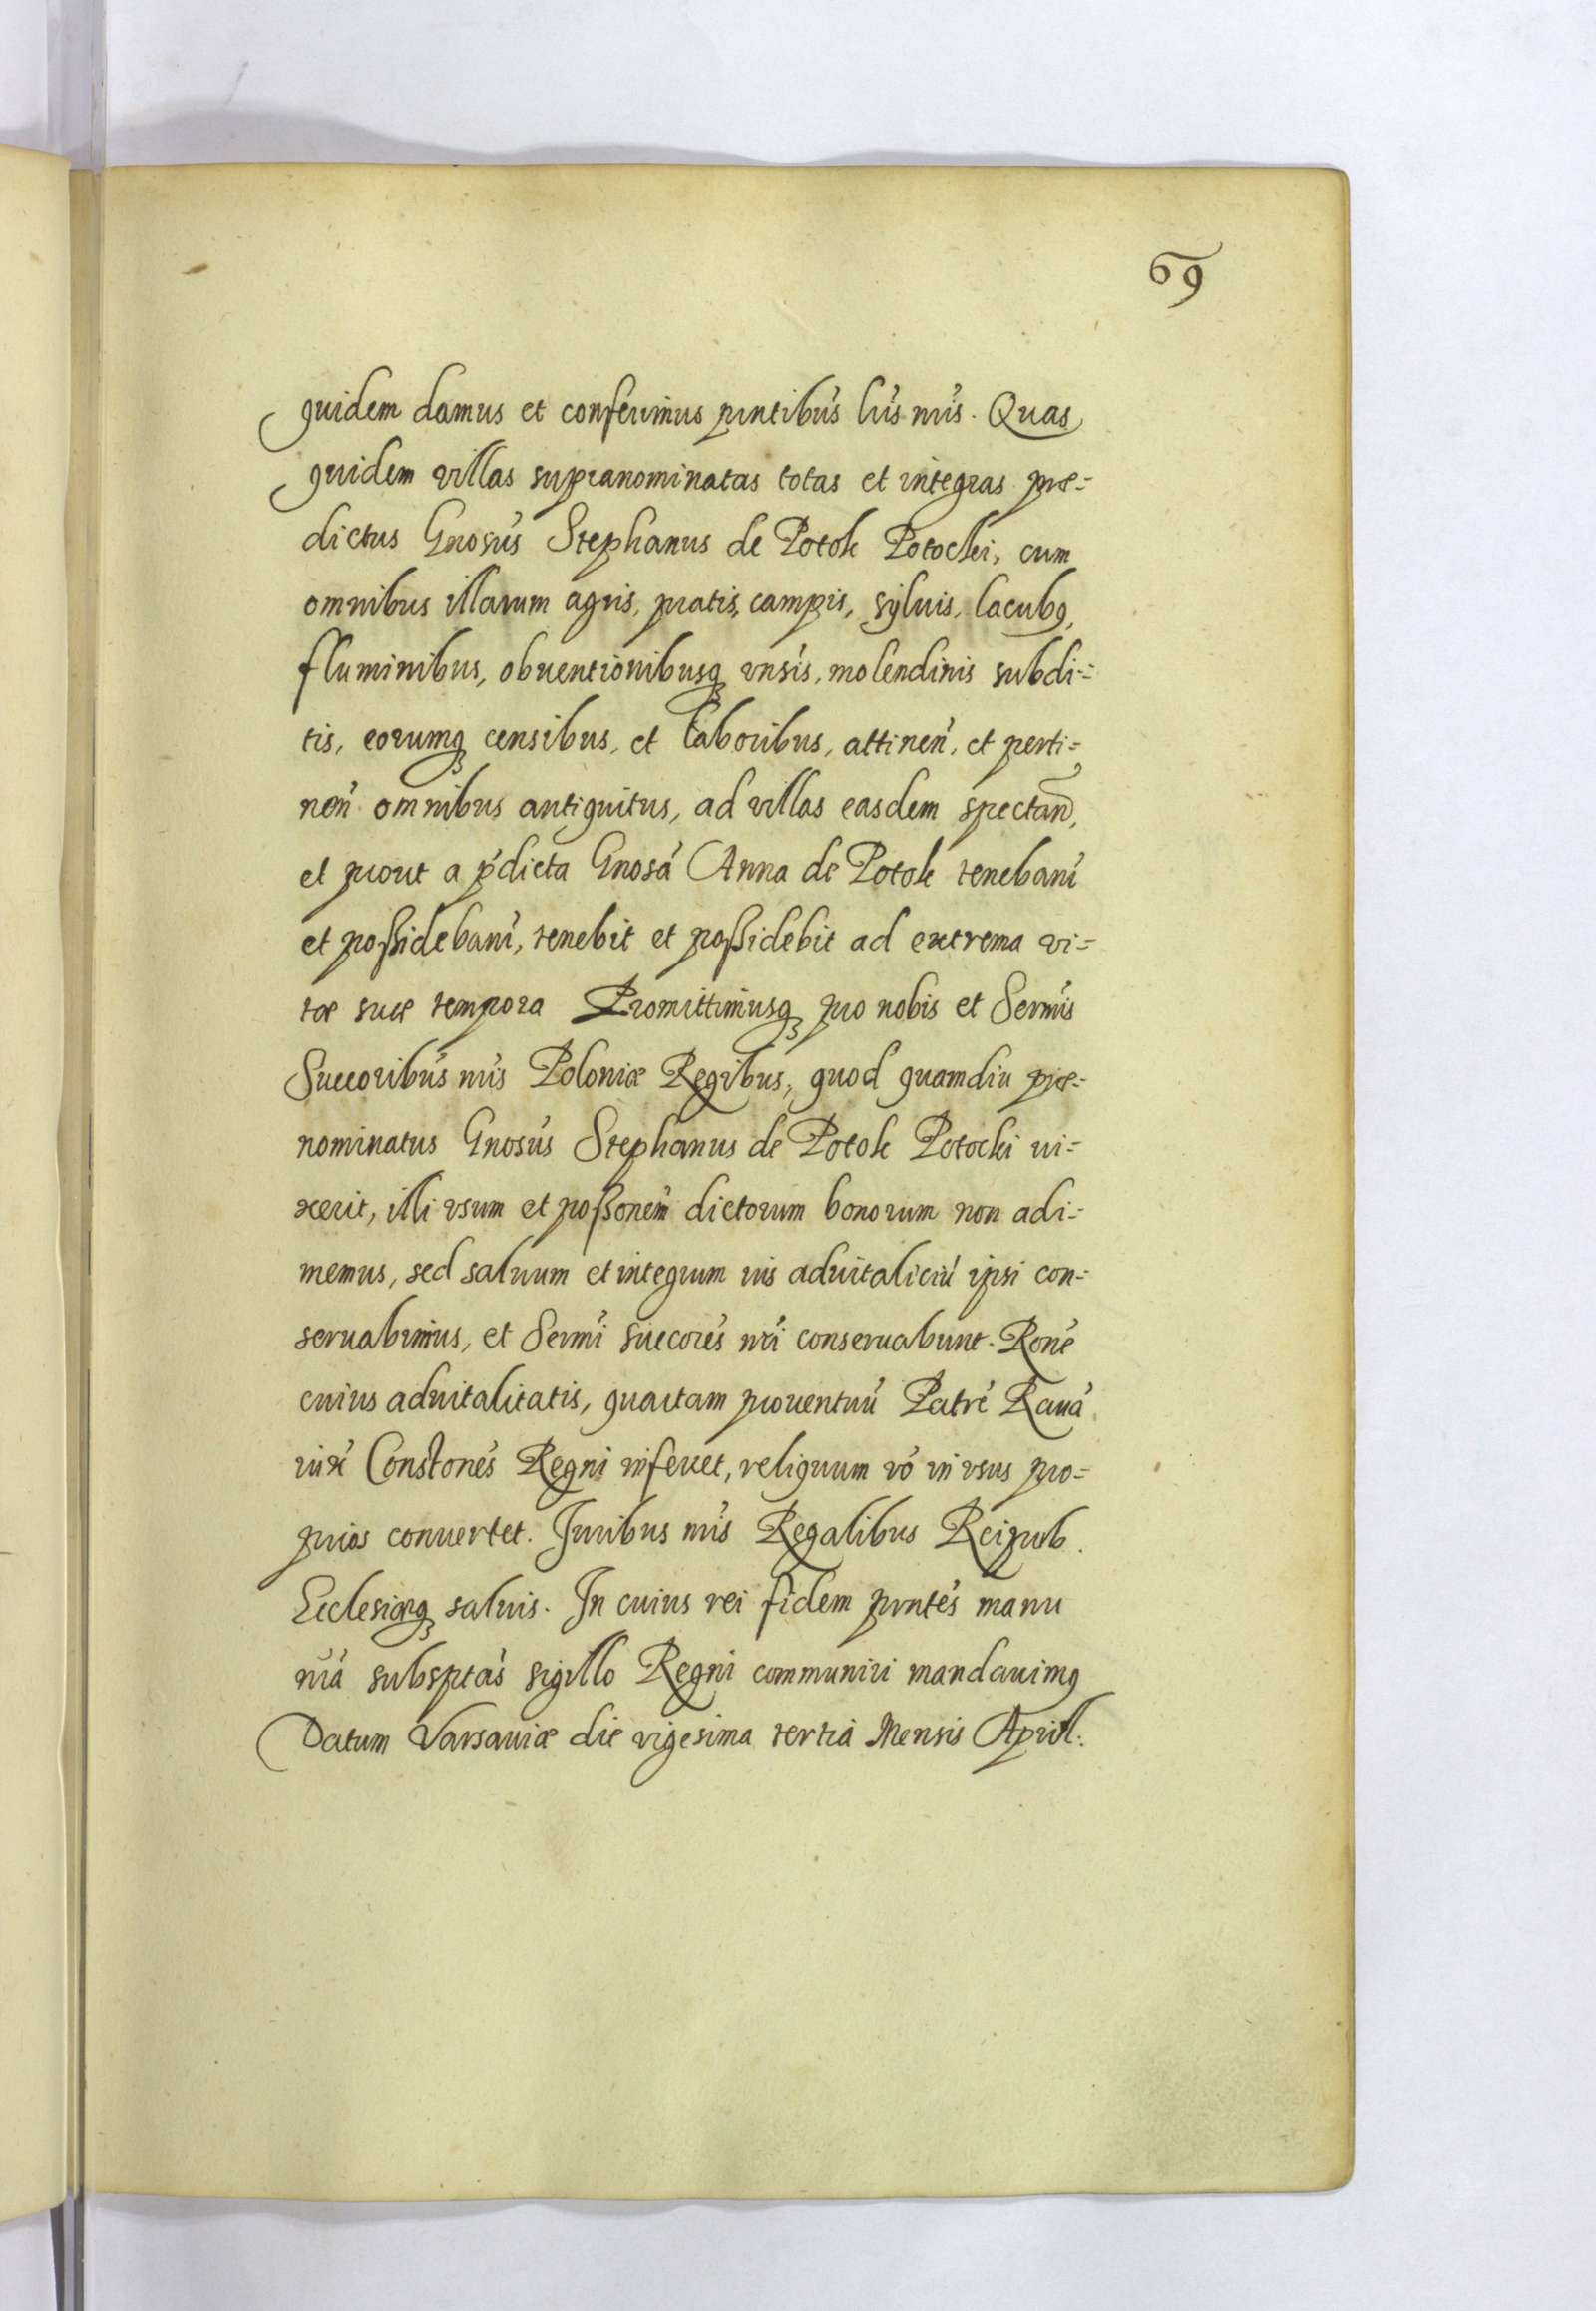 69
quidem damus et conferimus pntibus lris nris. Quas
quidem villas supranominatas totas et integras præ=
dictus Gnosus Stephanus de Potok Potocki, cum
omnibus illarum agris, pratis, campis, syluis, lacubꝯ,
fluminibus, obuentionibusqꝫ vnsis, molendinis subdi=
tis, eorumqꝫ censibus, et laboribus, attinen̄, et perti=
nen̄ omnibus antiquitus, ad villas easdem spectan̄,
et prout a p̄dicta Gnosa Anna de Potok tenebant̄
et poßidebant̄, tenebit et poßidebit ad extrema vi=
tæ suæ tempora Promittimusqꝫ pro nobis et Sermis
Succoribus nris Poloniæ Regibus, quod quamdiu præ=
nominatus Gnosus Stephanus de Potok Potocki vi=
xerit, illi vsum et poßonem dictorum bonorum non adi=
memus, sed saluum et integrum ius aduitaliciū ipsi con=
seruabimus, et Sermi succores nri conseruabunt. Rone
cuius aduitalitatis, quartam prouentuū Patri Rauā
iuxᵃ Constones Regni inferet, reliquum vo in vsus pro=
prios conuertet. Juribus nris Regalibus Reipub.
Ecclesiæqꝫ saluis. In cuius rei fidem pntes manu
nra subsptas sigillo Regni communiri mandauimꝯ
Datum Varsauiæ die vigesima tertia Mensis April: